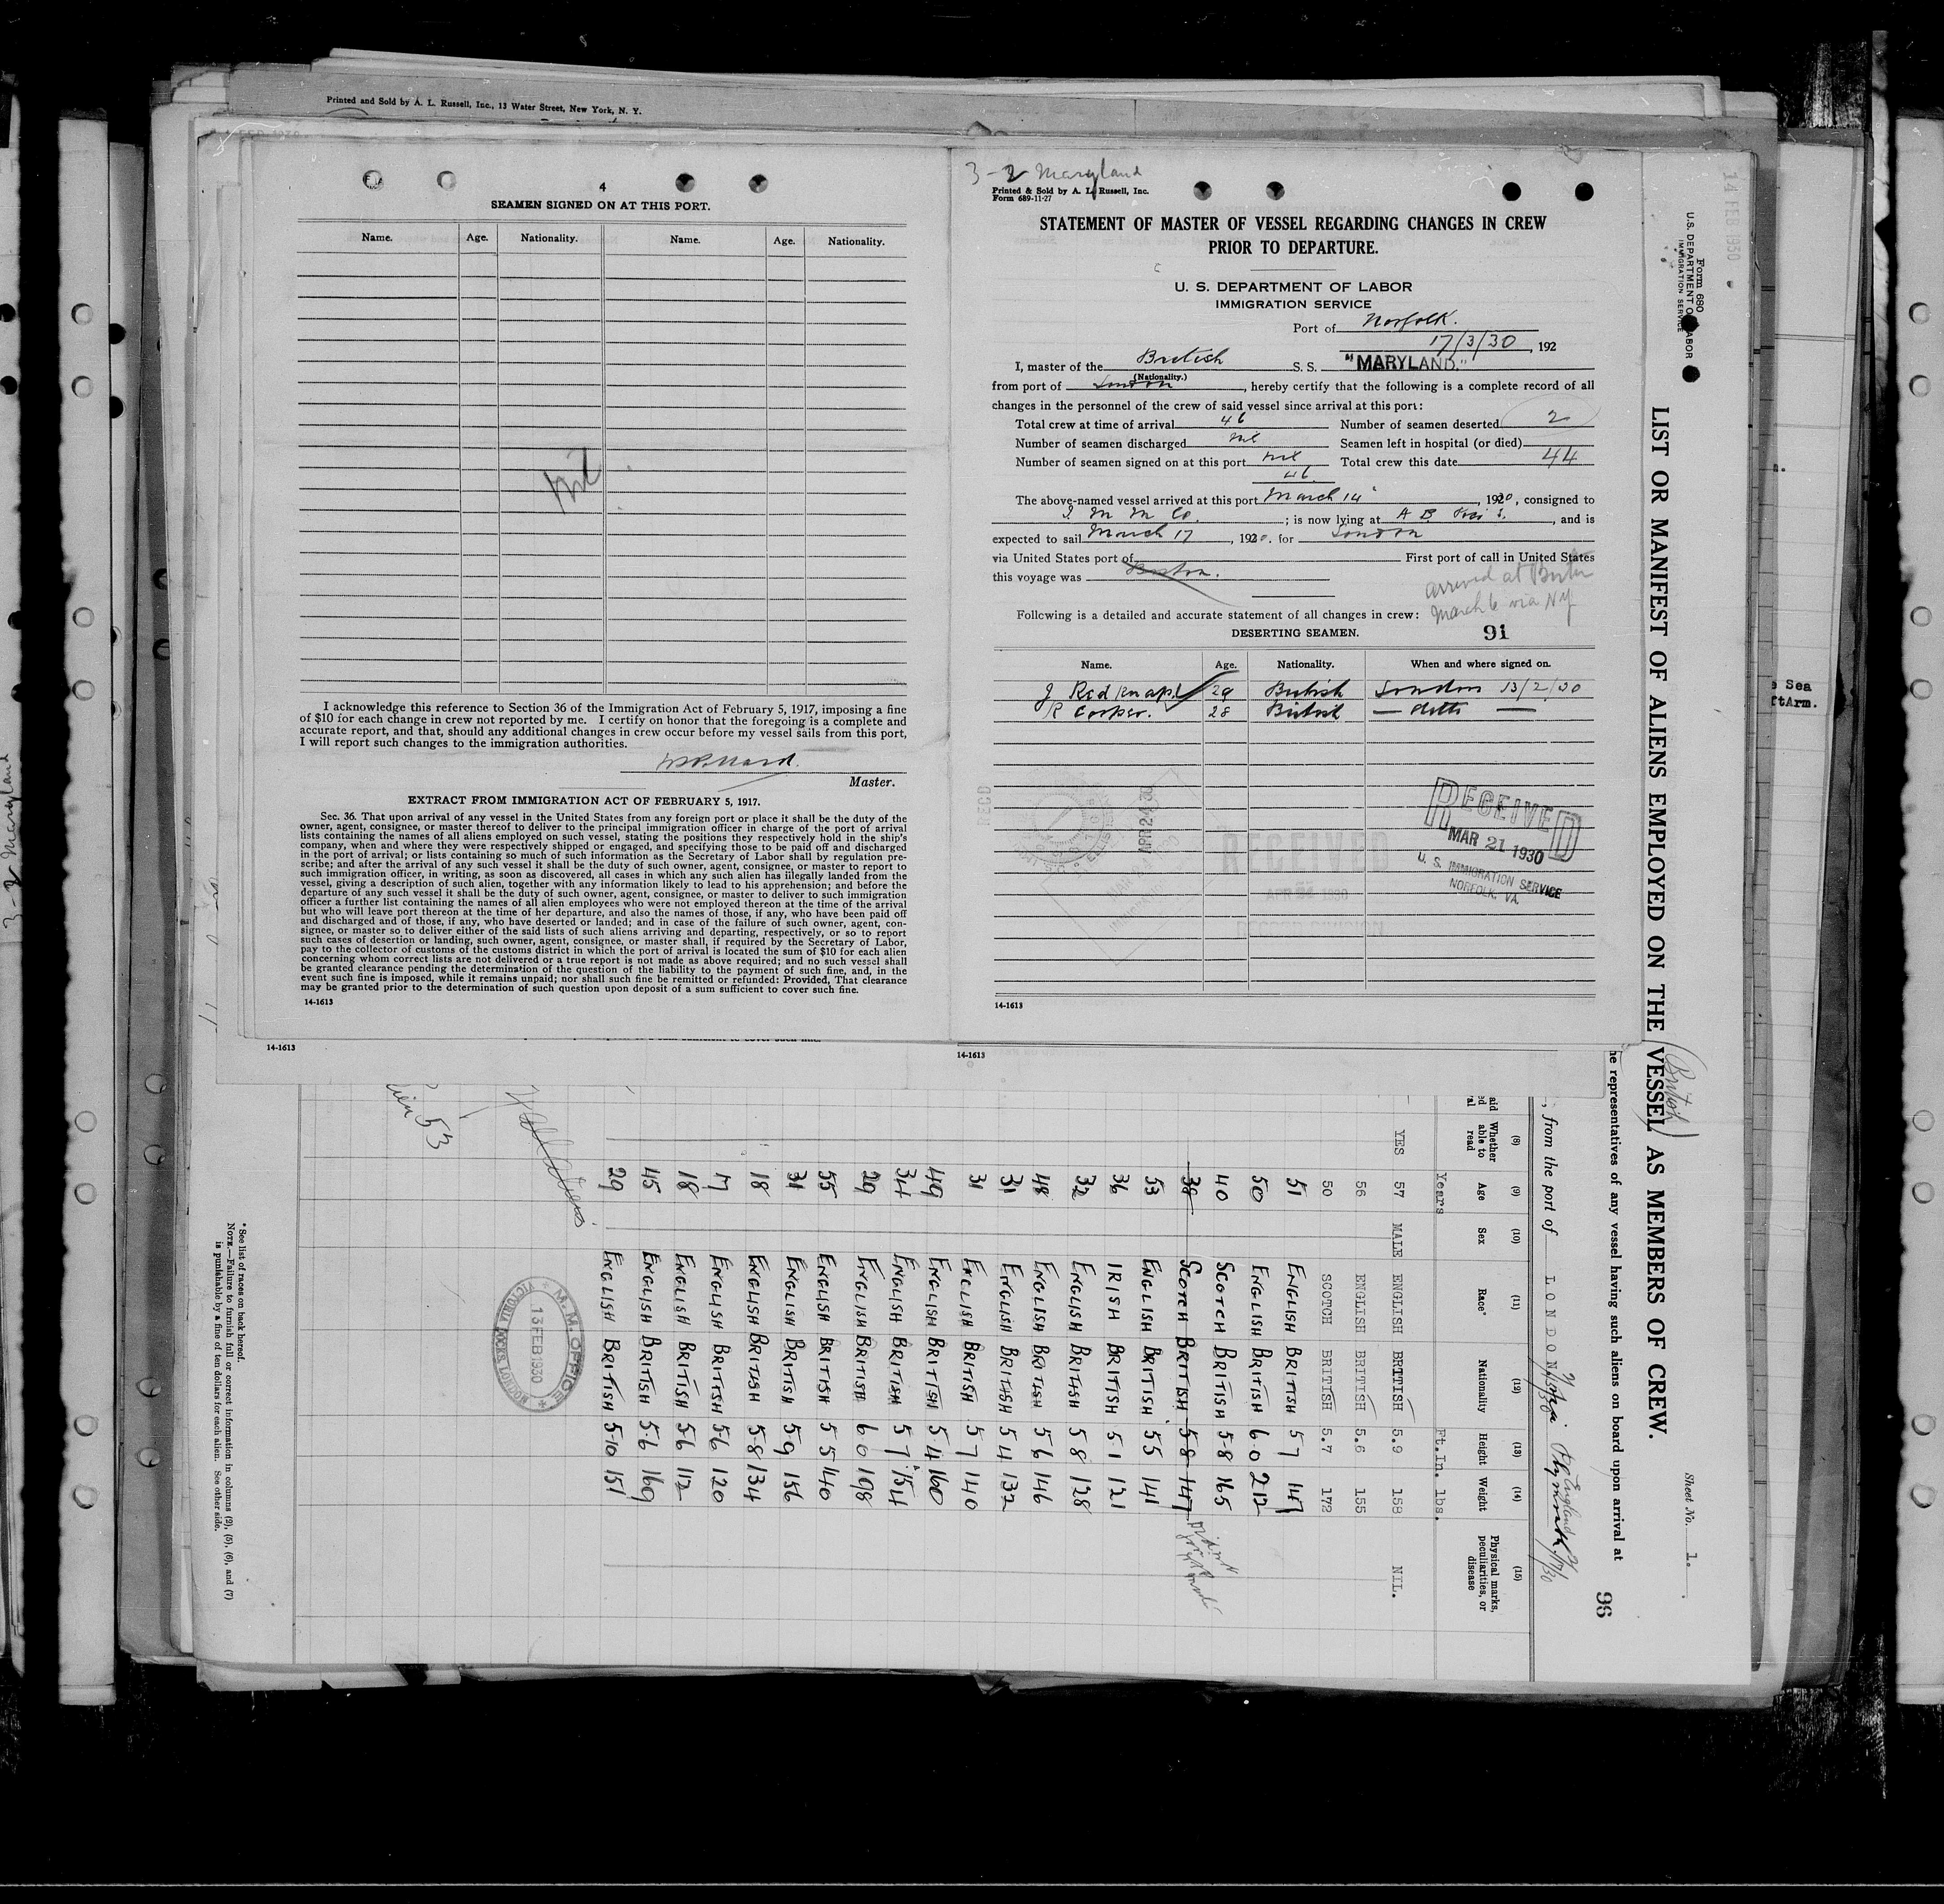 Printed and Sold by A. L. Russell, Inc., 13 Water Street, New York, N. Y.
4
SEAMEN SIGNED ON AT THIS PORT.
Name. Age. Nationality. Name. Age. Nationality.
Nil
I acknowledge this reference to Section 36 of the Immigration Act of February 5, 1917, imposing a fine
of $10 for each change in crew not reported by me. I certify on honor that the foregoing is a complete and
accurate report, and that, should any additional changes in crew occur before my vessel sails from this port,
I will report such changes to the immigration authorities.
Master.
EXTRACT FROM IMMIGRATION ACT OF FEBRUARY 5, 1917.
Sec. 36. That upon arrival of any vessel in the United States from any foreign port or place it shall be the duty of the
owner, agent, consignee, or master thereof to deliver to the principal immigration officer in charge of the port of arrival
lists containing the names of all aliens employed on such vessel, stating the positions they respectively hold in the ship's
company, when and where they were respectively shipped or engaged, and specifying those to be paid off and discharged
in the port of arrival; or lists containing so much of such information as the Secretary of Labor shall by regulation pre-
scribe; and after the arrival of any such vessel it shall be the duty of such owner, agent, consignee, or master to report to
such immigration officer, in writing, as soon as discovered, all cases in which any such alien has illegally landed from the
vessel, giving a description of such alien, together with any information likely to lead to his apprehension; and before the
departure of any such vessel it shall be the duty of such owner, agent, consignee, or master to deliver to such immigration
officer a further list containing the names of all alien employees who were not employed thereon at the time of the arrival
but who will leave port thereon at the time of her departure, and also the names of those, if any, who have been paid off
and discharged and of those, if any, who have deserted or landed; and in case of the failure of such owner, agent, con-
signee, or master so to deliver either of the said lists of such aliens arriving and departing, respectively, or so to report
such cases of desertion or landing, such owner, agent, consignee, or master shall, if required by the Secretary of Labor,
pay to the collector of customs of the customs district in which the port of arrival is located the sum of $10 for each alien
concerning whom correct lists are not delivered or a true report is not made as above required; and no such vessel shall
be granted clearance pending the determination of the question of the liability to the payment of such fine, and, in the
event such fine is imposed, while it remains unpaid; nor shall such fine be remitted or refunded: Provided, That clearance
may be granted prior to the determination of such question upon deposit of a sum sufficient to cover such fine.
14-1613
14-1613
3-2 Maryland
Printed & Sold by A. L. Russell, Inc.
Form 689-11-27
STATEMENT OF MASTER OF VESSEL REGARDING CHANGES IN CREW
PRIOR TO DEPARTURE.
U. S. DEPARTMENT OF LABOR
IMMIGRATION SERVICE
Port of Norfolk.
17/3/30, 192
I, master of the British S. S. "MARYLAND."
(Nationality.)
from port of London, hereby certify that the following is a complete record of all
changes in the personnel of the crew of said vessel since arrival at this port:
Total crew at time of arrival 46 Number of seamen deserted 2
Number of seamen discharged nil Seamen left in hospital (or died)
Number of seamen signed on at this port nil Total crew this date 44
46
The above-named vessel arrived at this port March 14, 1930, consigned to
I. M. M. Co.; is now lying at A B, and is
expected to sail March 17, 1930. for London
via United States port of First port of call in United States
this voyage was Boston.
arrived at Boston
March 6 via NY
Following is a detailed and accurate statement of all changes in crew:
DESERTING SEAMEN. 91
Name. Age. Nationality. When and where signed on.
J Redknap 29 British London 13/2/30
R Cooper. 28 British — ditto —
RECD
APR 24 30
RECEIVED
APR 1930
RECEIVED
MAR 21 1930
U. S. IMMIGRATION SERVICE
NORFOLK, VA.
14-1613
14-1613
14 FEB 1930
Form 680
U.S. DEPARTMENT OF LABOR
IMMIGRATION SERVICE
LIST OR MANIFEST OF ALIENS EMPLOYED ON THE VESSEL AS MEMBERS OF CREW.
(British)
Sheet No. 1.
he representatives of any vessel having such aliens on board upon arrival at
96
, from the port of LONDON
(8) (9) (10) (11) (12) (13) (14) (15)
Whether able to read Age Sex Race* Nationality Height Weight Physical marks, peculiarities, or disease
Years Ft. In. lbs.
YES 57 MALE ENGLISH BRITISH 5.9 158 NIL.
56 ENGLISH BRITISH 5.6 155
50 SCOTCH BRITISH 5.7 172
51 ENGLISH BRITISH 5 7 147
50 ENGLISH BRITISH 6 0 212
40 SCOTCH BRITISH 5-8 165
38 SCOTCH BRITISH 5-8 147
53 ENGLISH BRITISH 5 5 141
36 IRISH BRITISH 5-1 121
32 ENGLISH BRITISH 5 8 128
48 ENGLISH BRITISH 5 6 146
31 ENGLISH BRITISH 5 4 132
31 ENGLISH BRITISH 5 7 140
49 ENGLISH BRITISH 5 4 160
34 ENGLISH BRITISH 5 7 154
29 ENGLISH BRITISH 6 0 198
55 ENGLISH BRITISH 5 5 140
31 ENGLISH BRITISH 5 9 156
18 ENGLISH BRITISH 5-8 134
17 ENGLISH BRITISH 5-6 120
18 ENGLISH BRITISH 5-6 112
45 ENGLISH BRITISH 5-6 169
29 ENGLISH BRITISH 5-10 151
M.M. OFFICE
13 FEB 1930
VICTORIA DOCKS, LONDON
53
* See list of races on back hereof.
NOTE.—Failure to furnish full or correct information in columns (2), (5), (6), and (7)
is punishable by a fine of ten dollars for each alien. See other side.
3-2 Maryland
Sea
ftArm.